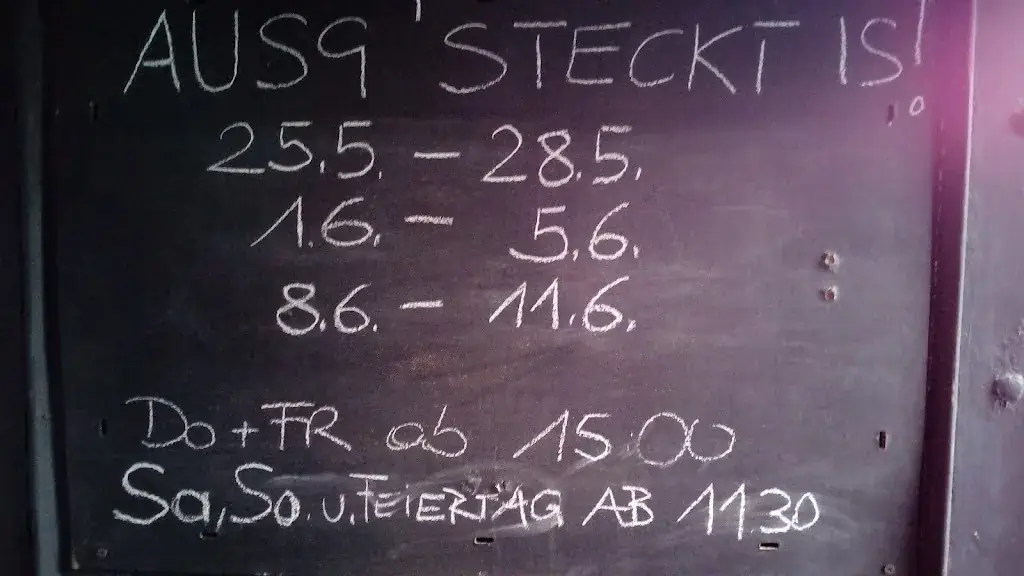 AUSG'STECKT IS!
25.5. – 28.5.
1.6. – 5.6.
8.6. – 11.6.
Do + FR ab 15.00
Sa, So. u. FEIERTAG AB 11.30